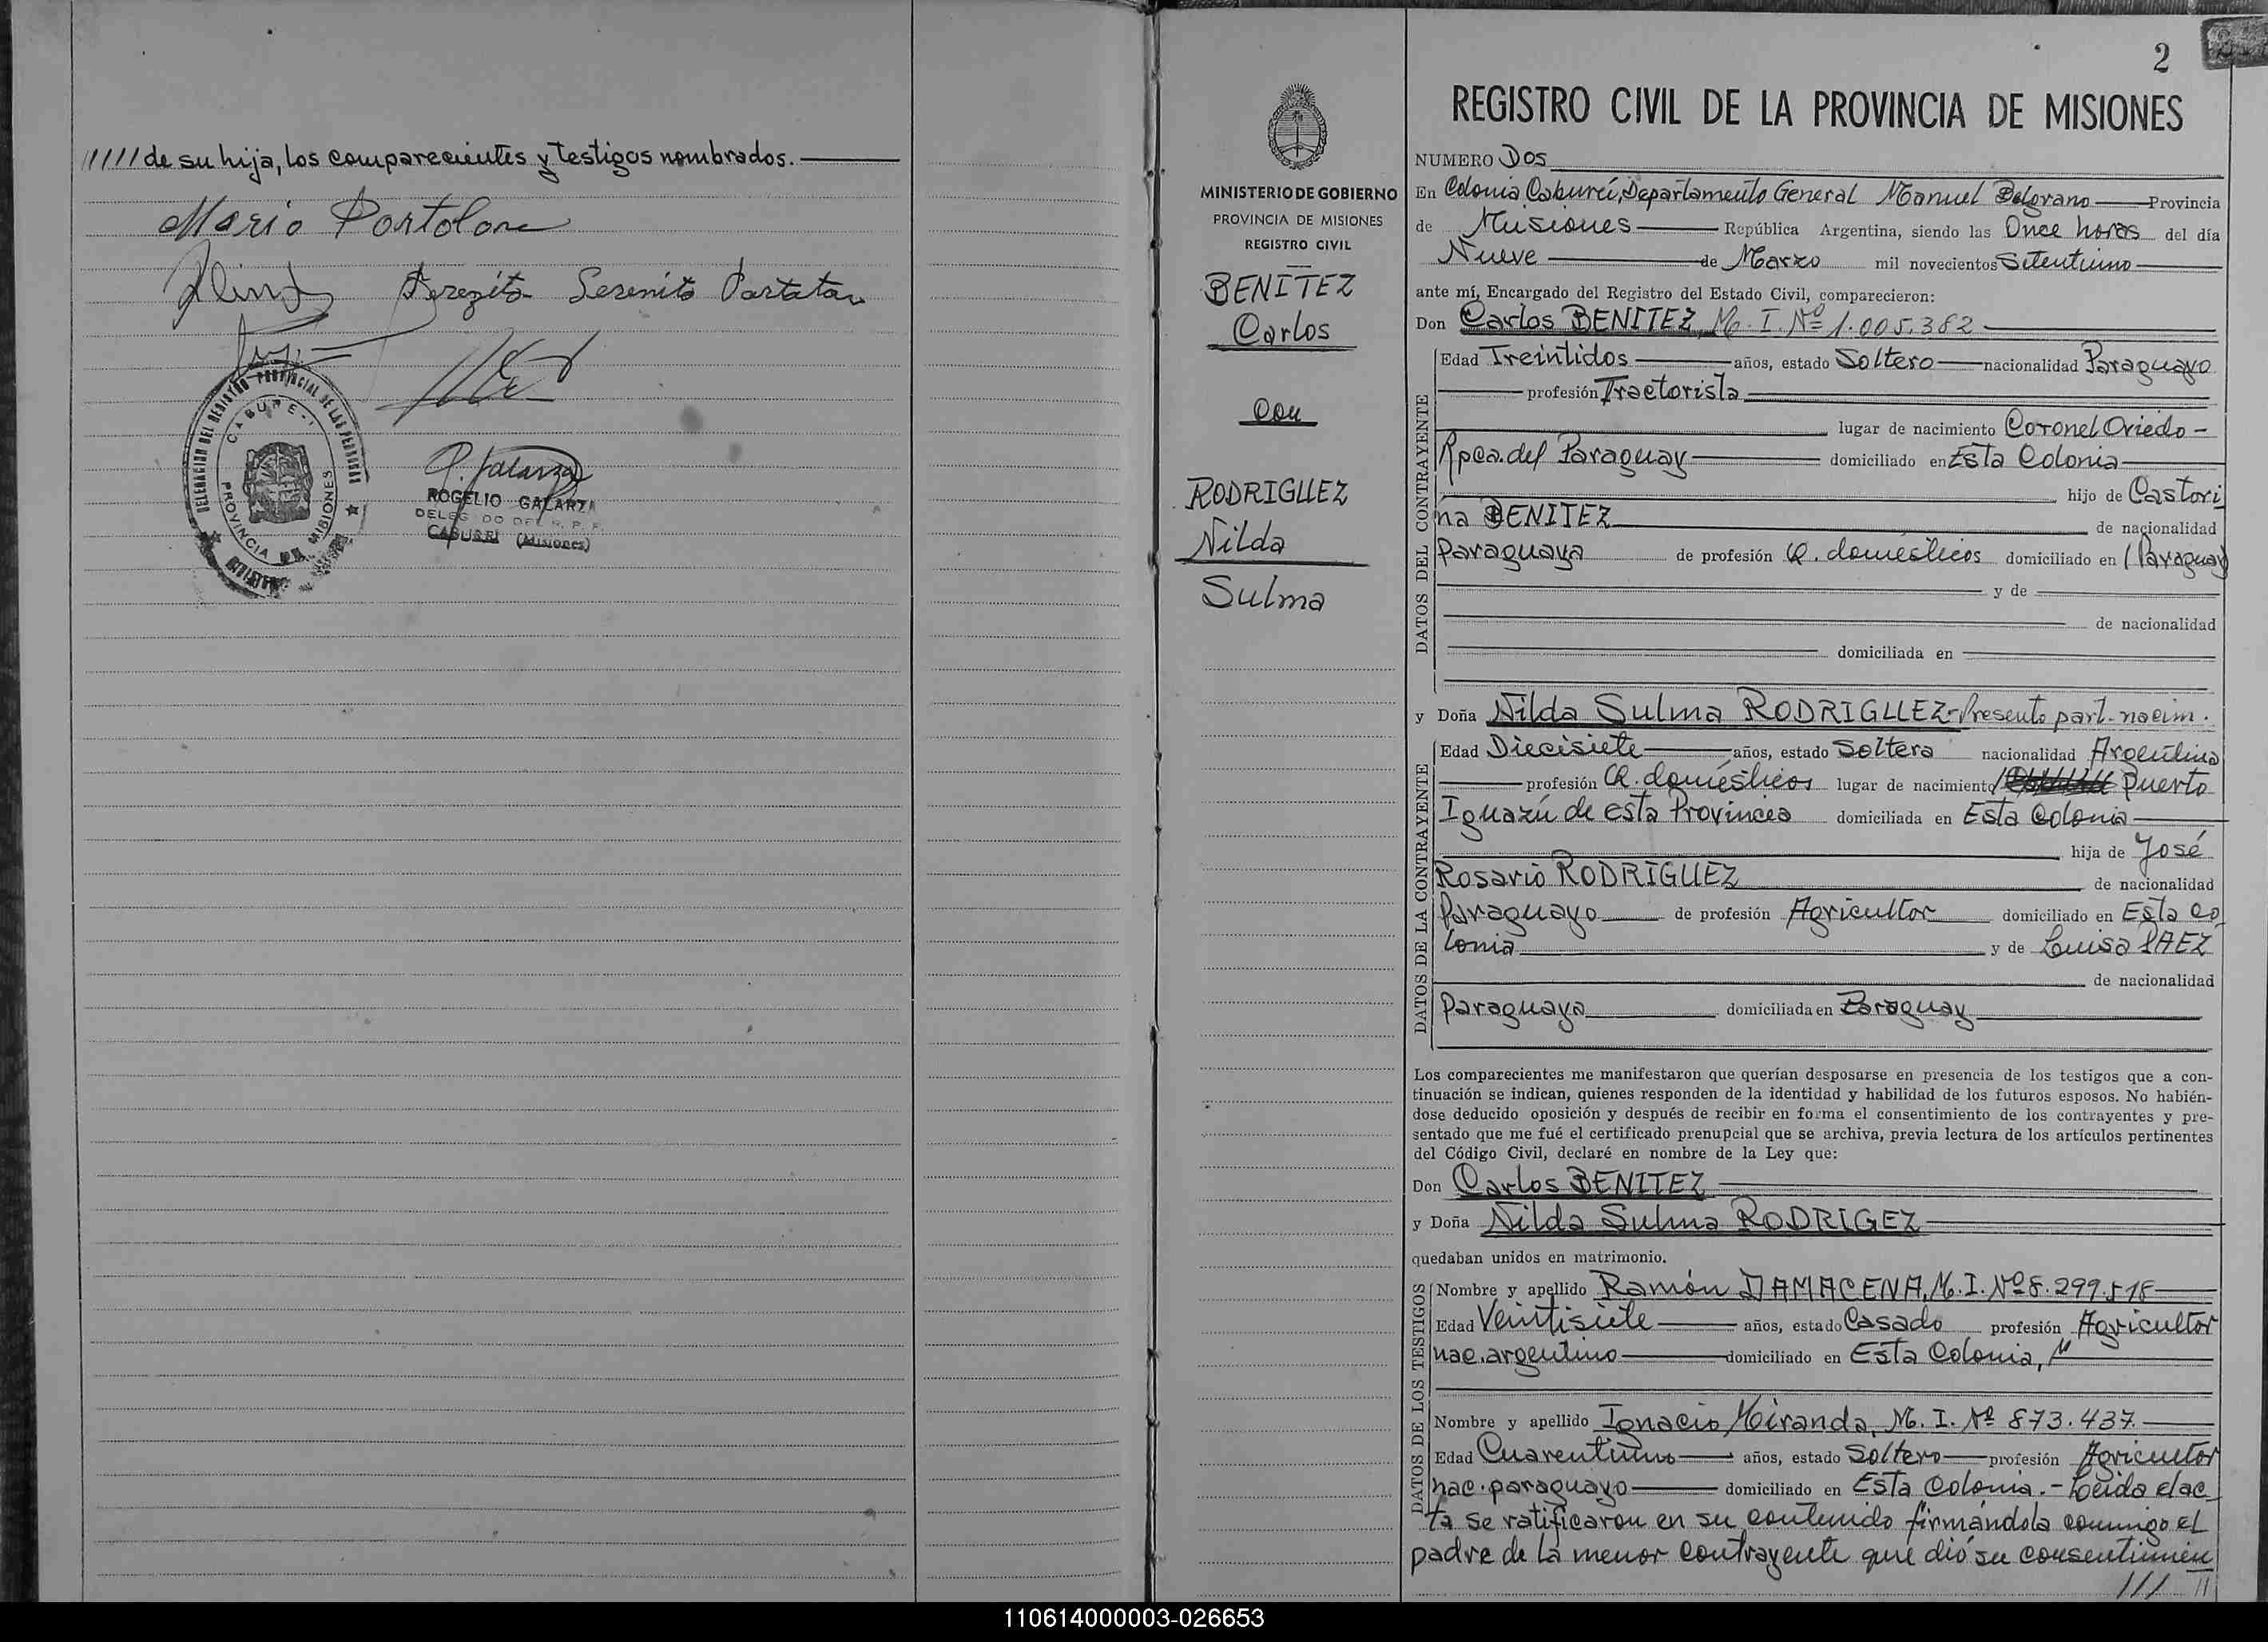 ///// de su hija, los comparecientes y testigos nombrados.
Mario Portolan
Serenito Portolan
DELEGACION DEL REGISTRO PROVINCIAL DE LAS PERSONAS
CABURE-I
PROVINCIA DE MISIONES
R. Galarza
ROGELIO GALARZA
DELEGADO DEL R. P. P.
CABUREI (Misiones)
2
MINISTERIO DE GOBIERNO
PROVINCIA DE MISIONES
REGISTRO CIVIL
BENITEZ
Carlos
con
RODRIGUEZ
Nilda
Sulma
REGISTRO CIVIL DE LA PROVINCIA DE MISIONES
NUMERO Dos
En Colonia Caburei, Departamento General Manuel Belgrano Provincia
de Misiones República Argentina, siendo las Once horas del día
Nueve de Marzo mil novecientos Setentiuno
ante mí, Encargado del Registro del Estado Civil, comparecieron:
Don Carlos BENITEZ, M. I. Nº 1.005.382
DATOS DEL CONTRAYENTE
Edad Treintidos años, estado Soltero nacionalidad Paraguayo
profesión Tractorista
lugar de nacimiento Coronel Oviedo -
Rpca. del Paraguay domiciliado en Esta Colonia
hijo de Castori
na BENITEZ de nacionalidad
Paraguaya de profesión Q. domésticos domiciliado en Paraguay
y de
de nacionalidad
domiciliada en
y Doña Nilda Sulma RODRIGUEZ - Presento part. nacim.
DATOS DE LA CONTRAYENTE
Edad Diecisiete años, estado Soltera nacionalidad Argentina
profesión Q. domésticos lugar de nacimiento Puerto
Iguazú de esta Provincia domiciliada en Esta Colonia
hija de José
Rosario RODRIGUEZ de nacionalidad
Paraguayo de profesión Agricultor domiciliado en Esta Co
lonia y de Luisa PAEZ
de nacionalidad
Paraguaya domiciliada en Paraguay
Los comparecientes me manifestaron que querían desposarse en presencia de los testigos que a con-
tinuación se indican, quienes responden de la identidad y habilidad de los futuros esposos. No habién-
dose deducido oposición y después de recibir en forma el consentimiento de los contrayentes y pre-
sentado que me fué el certificado prenupcial que se archiva, previa lectura de los artículos pertinentes
del Código Civil, declaré en nombre de la Ley que:
Don Carlos BENITEZ
y Doña Nilda Sulma RODRIGEZ
quedaban unidos en matrimonio.
DATOS DE LOS TESTIGOS
Nombre y apellido Ramón DAMACENA, M. I. Nº 8.299.518
Edad Veintisiete años, estado Casado profesión Agricultor
nac. argentino domiciliado en Esta Colonia,
Nombre y apellido Ignacio Miranda, M. I. Nº 873.437
Edad Cuarentiuno años, estado Soltero profesión Agricultor
nac. paraguayo domiciliado en Esta Colonia. - Leida el ac
ta se ratificaron en su contenido firmándola conmigo el
padre de la menor contrayente que dió su consentimien
///
110614000003-026653